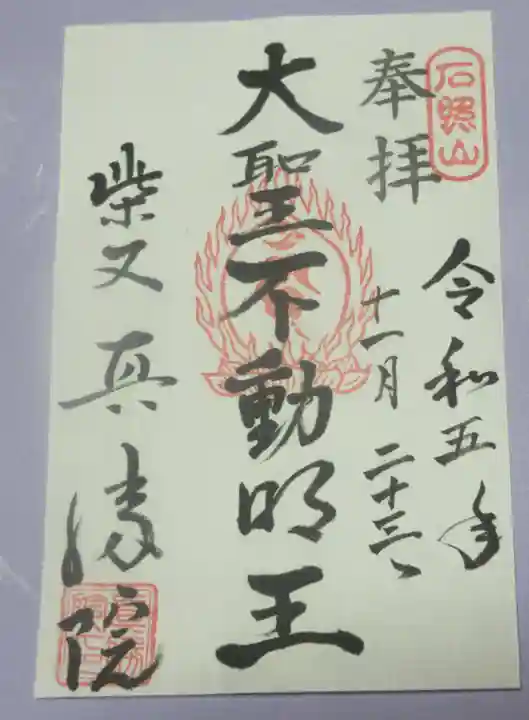 石照山
奉拝
令和五年
十一月二十三日
大聖不動明王
柴又真勝院